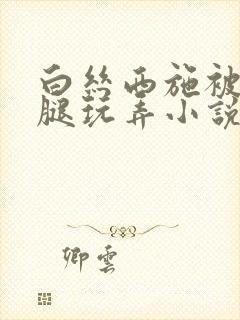 白絲西施被
腿玩弄小說
卿雲